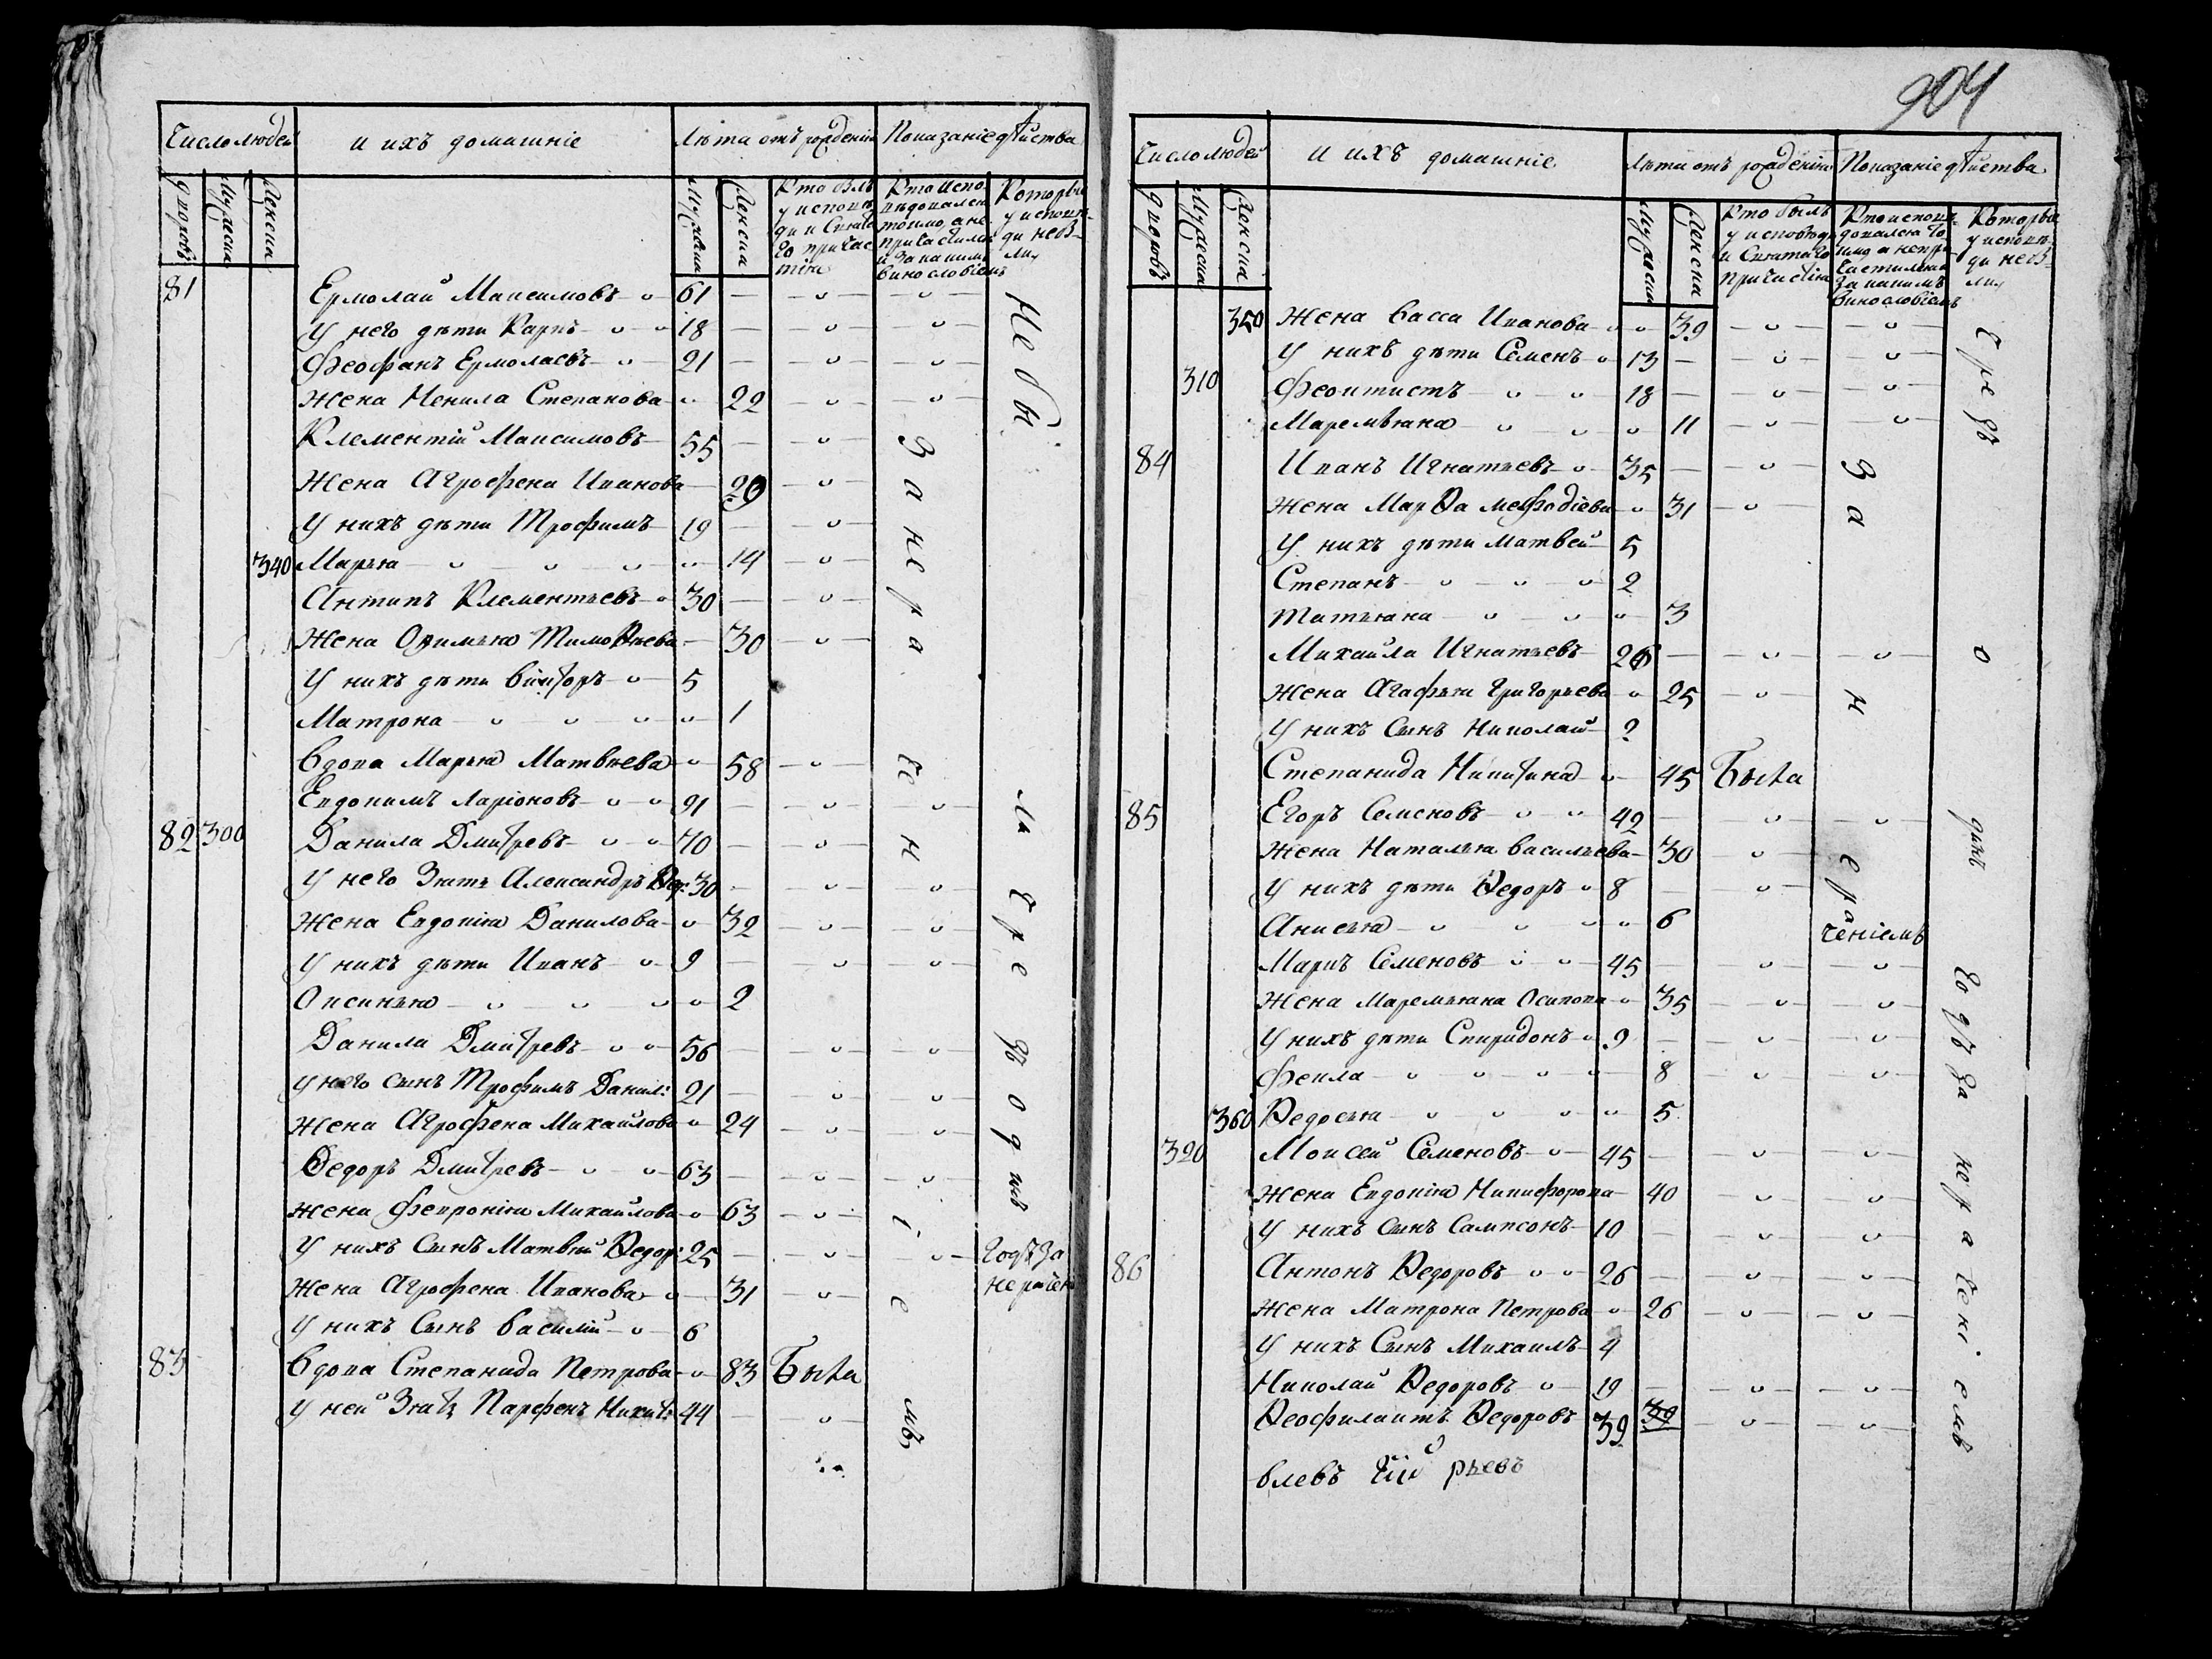 904
Число людей и ихъ домашніе Лѣта отъ рожденія Показаніе дѣйства
дворовъ Мужеска Женска Мужеска Женска
Кто былъ у исповѣди и Святаго причастія
Кто исповѣдовался токмо а не причастился и за какимъ винословіемъ
Которые у исповѣди не были
81 Ермолай Максимовъ 61
У него дѣти Карпъ 18
Феофанъ Ермолаевъ 21
Жена Ненила Степанова 22
Клементій Максимовъ 55
Жена Агрофена Иванова 29
У нихъ дѣти Трофимъ 19
340 Марья 14
Антипъ Клементьевъ 30
Жена Офимья Тимоѳеева 30
У нихъ дѣти Викторъ 5
Матрона 1
Вдова Марья Матвѣева 58
Евдокимъ Ларіоновъ 91
82 300 Данила Дмитревъ 70
У него Зять Александръ Ѳед: 30
Жена Евдокія Данилова 32
У нихъ дѣти Иванъ 9
Оксинья 2
Данила Дмитревъ 56
У него сынъ Трофимъ Данил: 21
Жена Агрофена Михаилова 24
Ѳедоръ Дмитревъ 63
Жена Февронія Михаилова 63
У нихъ Сынъ Матвѣй Ѳедор: 25
Жена Агрофена Иванова 31
У нихъ Сынъ Василій 6
83 Вдова Степанида Петрова 83 Была
У ней Зять Парфенъ Никит: 44
За нераченіемъ
Не была Средѣ одинъ
годъ за
нерачен
Число людей и ихъ домашніе Лѣта отъ рожденія Показаніе дѣйства
дворовъ Мужеска Женска Мужеска Женска
Кто былъ у исповѣди и Святаго причастія
Кто исповѣдовался токмо а не причастился и за какимъ винословіемъ
Которые у исповѣди не были
350 Жена Васса Иванова 39
У нихъ дѣти Семенъ 13
310 Феоктистъ 18
Маремьяна 11
84 Иванъ Игнатьевъ 35
Жена Марѳа Мефодіева 31
У нихъ дѣти Матвей 5
Степанъ 2
Татьяна 3
Михаила Игнатьевъ 26
Жена Агафья Григорьева 25
У нихъ Сынъ Николай 2
Степанида Никитина 45 Была
85 Егоръ Семеновъ 42
Жена Наталья Васильева 30
У нихъ дѣти Ѳедоръ 8
Анисья 6
Маркъ Семеновъ 45
Жена Маремьяна Осипова 35
У нихъ дѣти Спиридонъ 9
Фекла 8
360 Ѳедосья 5
320 Моисей Семеновъ 45
Жена Евдокія Никифорова 40
У нихъ Сынъ Сампсонъ 10
86 Антонъ Ѳедоровъ 26
Жена Матрона Петрова 26
У нихъ Сынъ Михаилъ 4
Николай Ѳедоровъ 19
Ѳеофилактъ Ѳедоровъ 39 39
За нераченіемъ
одинъ годъ за нераченіемъ